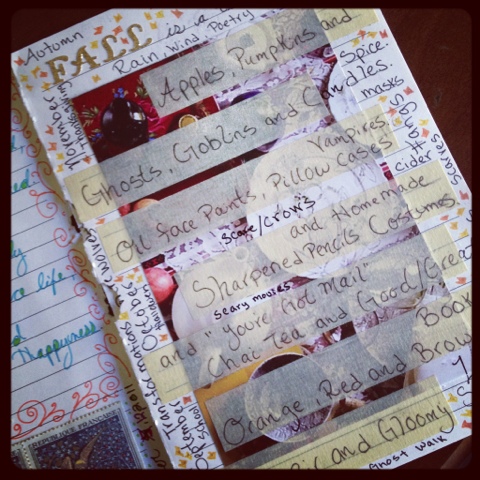 Autumn
FALL
is a
Rain, Wind, Poetry
Apples, Pumpkins and
Spice.
Ghosts, Goblins and Candles.
masks
Vampires
Hangars
scarves
cider
Oil face Paints, Pillow cases
scare/crows
and Homemade
Sharpened Pencils Costumes.
scary movies
and "you've Got mail"
Chai Tea and Good/Great
Book
Orange, Red and Brow
and Gloomy
Ghost walk
November
Thanksgiving
wolves
October
Halloween
Transformations
September
School
Spirall
e life
Happyness